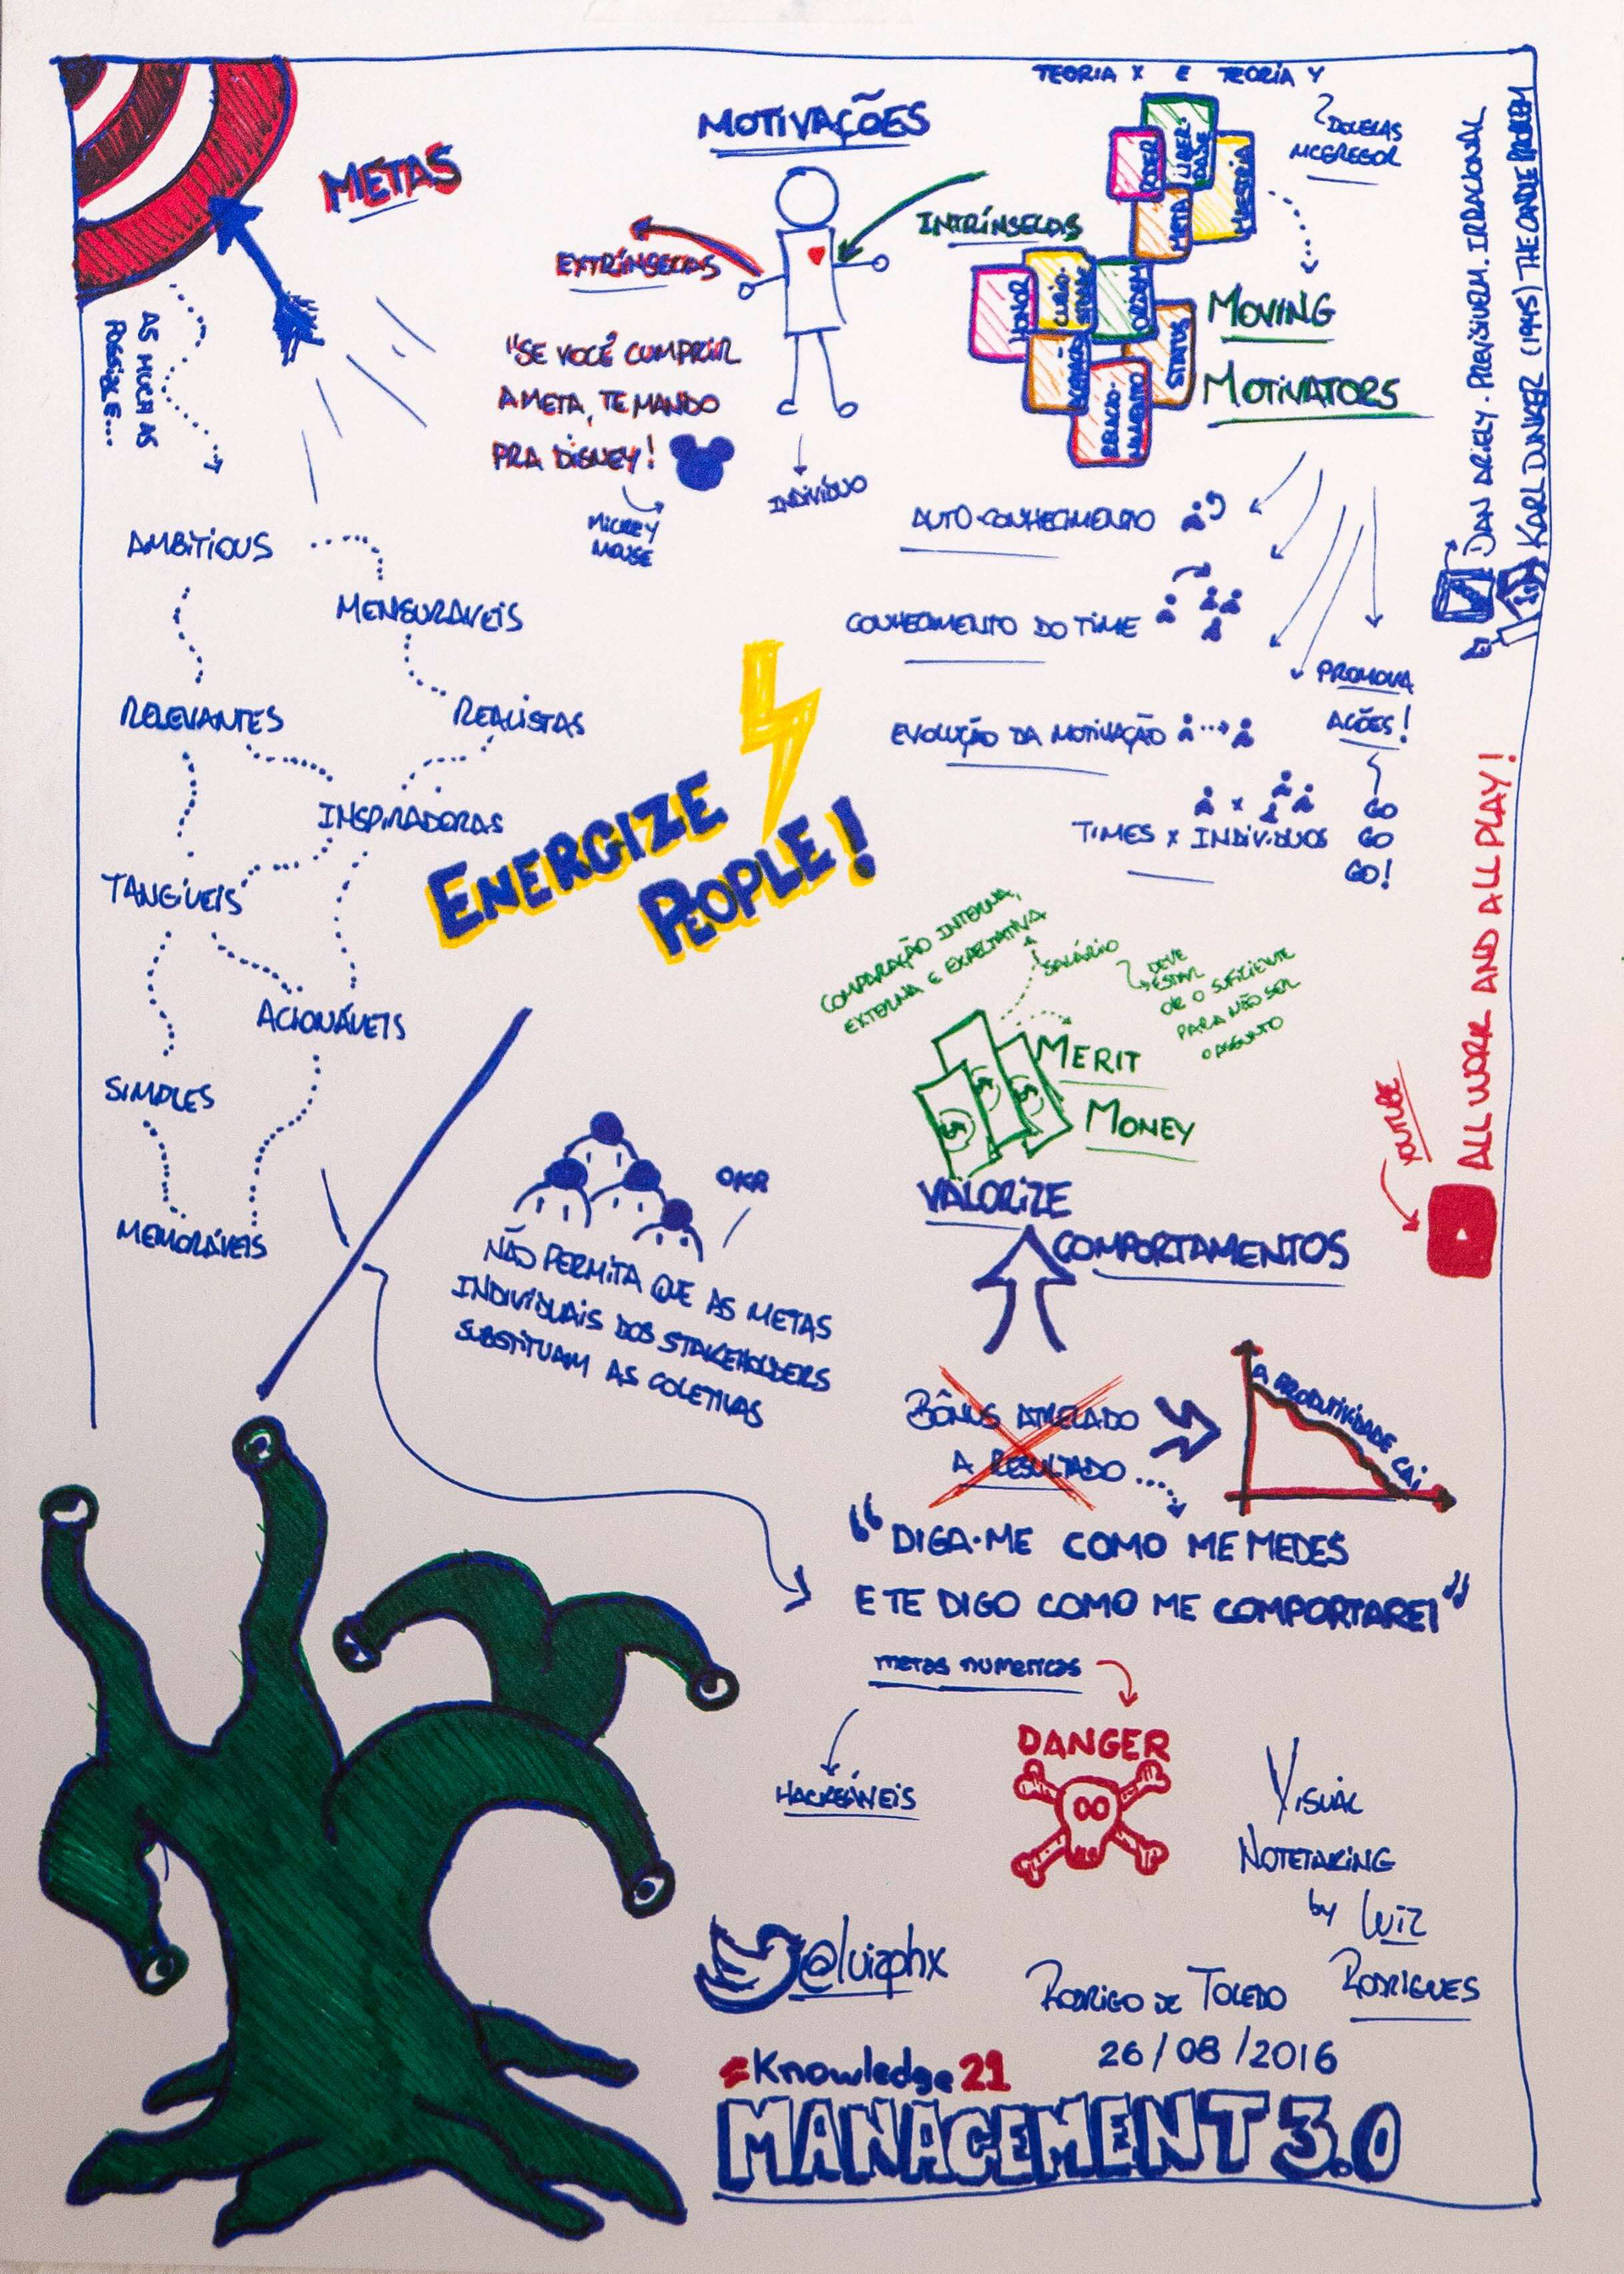 METAS
AS MUCH AS
POSSIBLE...
AMBITIOUS
MENSURÁVEIS
RELEVANTES
REALISTAS
INSPIRADORAS
TANGÍVEIS
ACIONÁVEIS
SIMPLES
MEMORÁVEIS
MOTIVAÇÕES
EXTRÍNSECAS
INTRÍNSECAS
"SE VOCÊ CUMPRIR
A META, TE MANDO
PRA DISNEY!
MICKEY
MOUSE
INDIVÍDUO
TEORIA X E TEORIA Y
DOUGLAS
MCGREGOR
PODER
LIBER-
DADE
MAESTRIA
META
HONOR
CURIO-
SIDADE
ORDEM
STATUS
RELACIO-
NAMENTO
MOVING
MOTIVATORS
AUTO-CONHECIMENTO
CONHECIMENTO DO TIME
EVOLUÇÃO DA MOTIVAÇÃO
TIMES X INDIVIDUOS
PROMOVA
AÇÕES!
GO
GO
GO!
DAN ARIELY - PREVISIVEM. IRRACIONAL
KARL DUNKER (1945) THE CANDLE PROBLEM
ENERGIZE
PEOPLE!
COMPARAÇÃO INTERNA,
EXTERNA E EXPECTATIVA
SALÁRIO
DEVE
ESTAR
O SUFICIENTE
PARA NÃO SER
O ASSUNTO
MERIT
MONEY
YOUTUBE
ALL WORK AND ALL PLAY!
VALORIZE
COMPORTAMENTOS
OKR
NÃO PERMITA QUE AS METAS
INDIVIDUAIS DOS STAKEHOLDERS
SUBSTITUAM AS COLETIVAS
BÔNUS ATRELADO
A RESULTADO
A PRODUTIVIDADE CAI
"DIGA-ME COMO ME MEDES
E TE DIGO COMO ME COMPORTAREI"
METAS NUMERICAS
HACKEÁVEIS
DANGER
VISUAL
NOTETAKING
by LUIZ
RODRIGUES
@luizphx
RODRIGO DE TOLEDO
26/08/2016
Knowledge21
MANAGEMENT 3.0